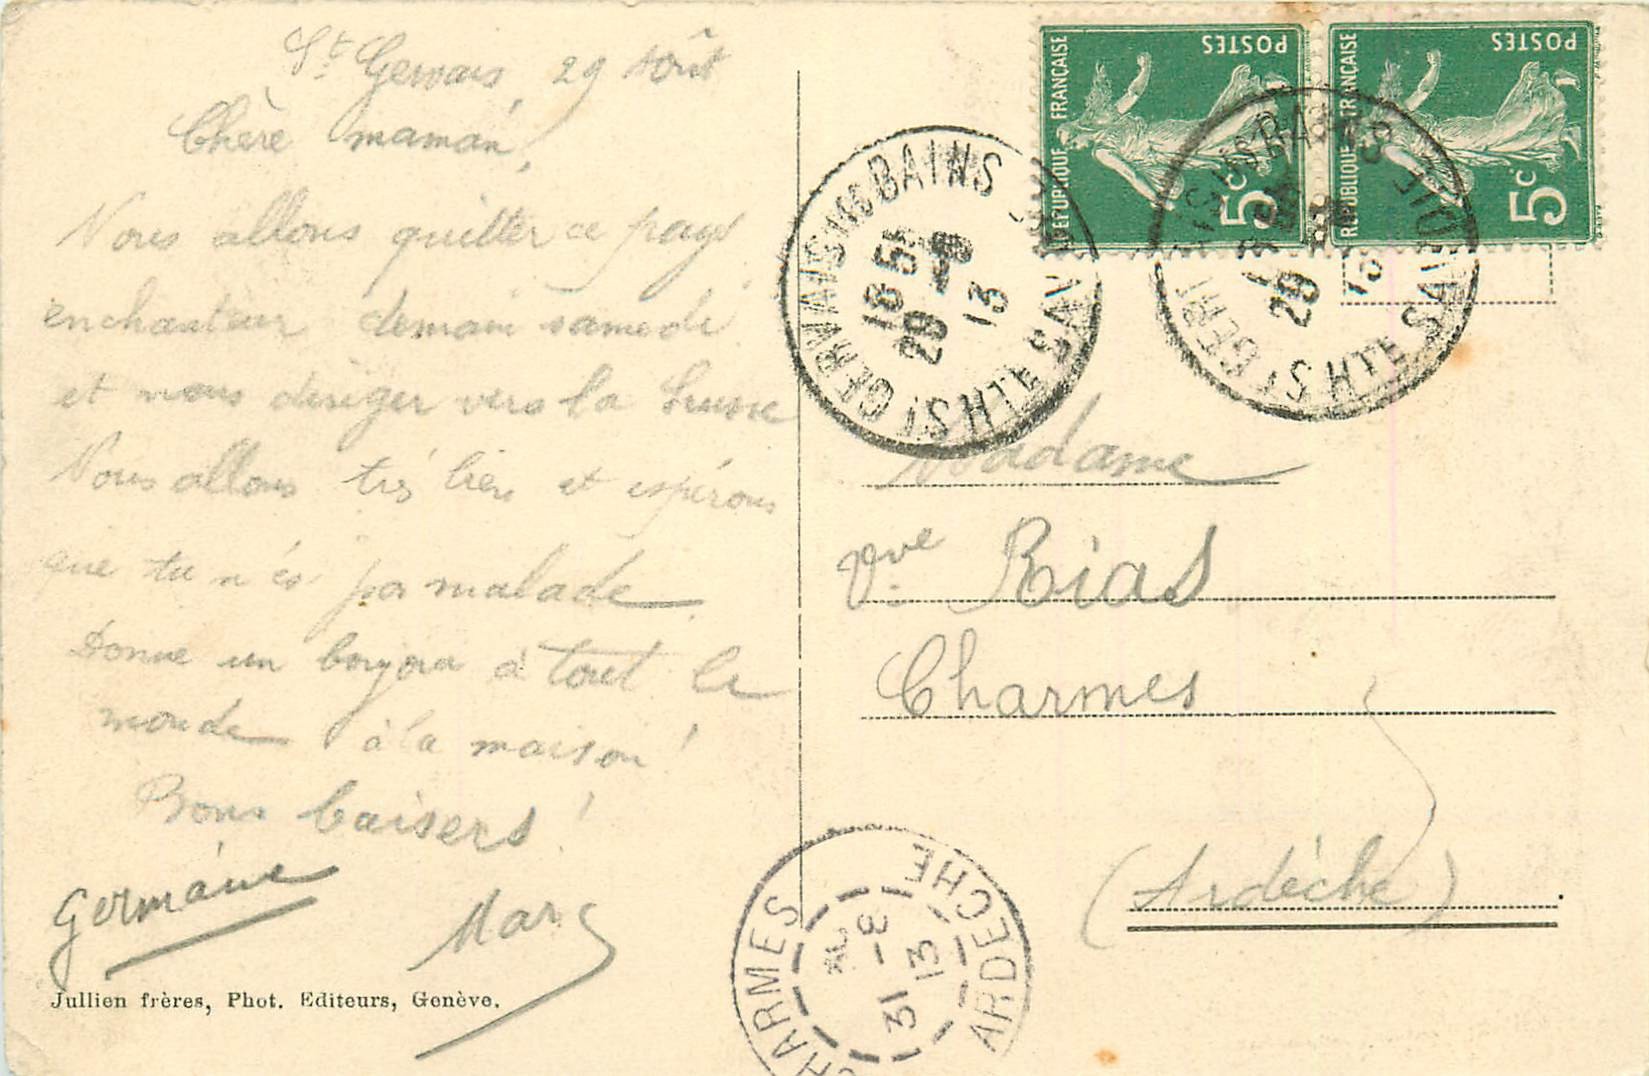 St Gervais, 29 Août
Chère maman,
Nous allons quitter ce pays
enchanteur demain samedi
et nous diriger vers la Suisse
Nous allons très bien et espérons
que tu n'es pas malade
Donne un bonjour à tout le
monde à la maison!
Bons baisers!
Germaine
Marc
Jullien frères, Phot. Editeurs, Genève.
POSTES
REPUBLIQUE FRANÇAISE
5c
POSTES
REPUBLIQUE FRANÇAISE
5c
ST GERVAIS LES BAINS HTE SAVOIE
18 5
29 -8
13
ST GERVAIS LES BAINS HTE SAVOIE
29
13
Madame
Vve Rias
Charmes
(Ardèche)
CHARMES ARDECHE
31 -8
13